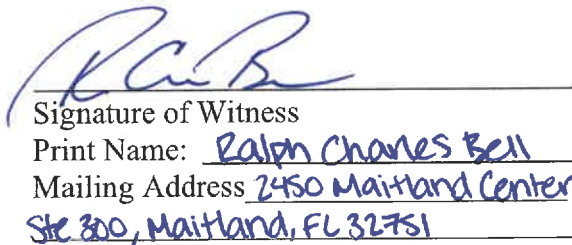 Signature of Witness
Print Name: Ralph Charles Bell
Mailing Address 2450 Maitland Center
Ste 300, Maitland, FL 32751